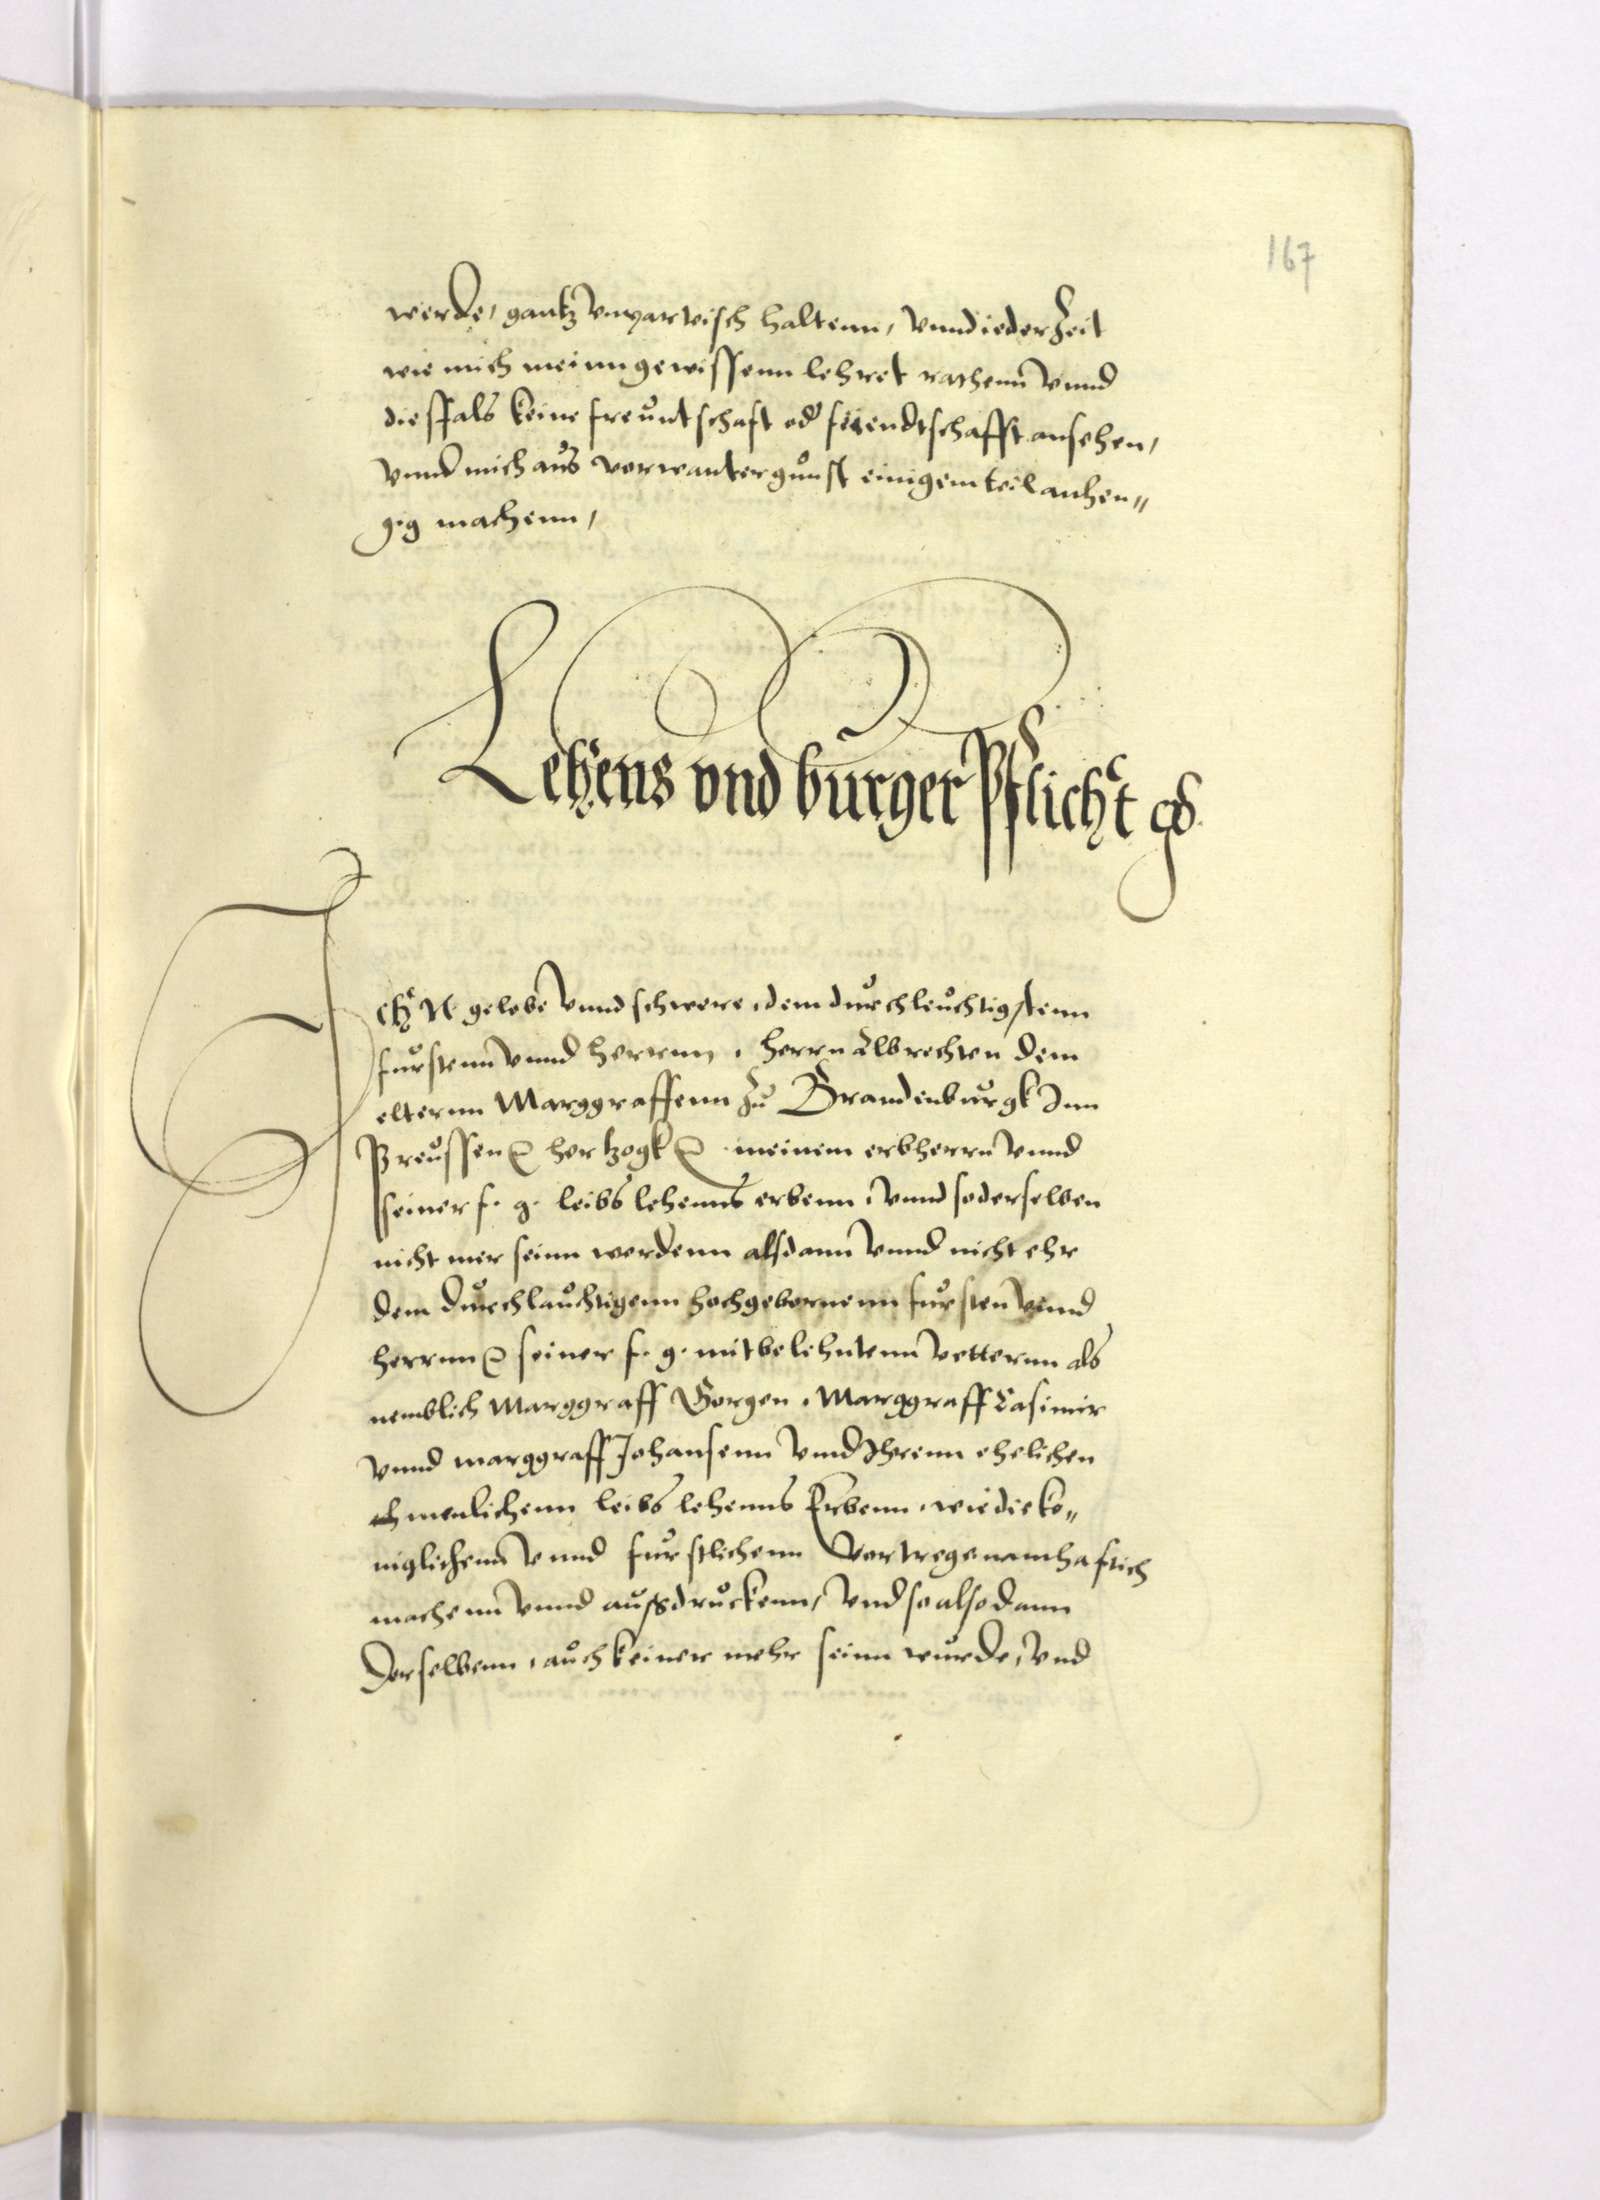 167
werde, gantz vnparteisch haltenn, vnnd ieder Zeit
wie mich meinn gewissenn lehret rathenn vnnd
diesfals keine freuntschaft od feiendtschafft ansehen,
vnnd mich aus verwanter gunst einigem teil anhen"
gig machenn,
Lehens vnd burger Pflicht
Ich N gelobe vnnd schwere, dem durchleuchtigstenn
furstenn vnnd herrnn, herrn Albrechten dem
elternn Marggraffenn Zu Brandenburgk Inn
Preussen hertzogk meinem erbherrn vnnd
seiner f. g. leibs lehenns erbenn, vnnd so derselben
nicht mer seinn werdenn alsdann vnnd nicht ehr
dem durchlauchtigenn hochgebornenn fursten vnnd
herrnn seiner f. g. mitbelehntenn vetternn als
nemblich Marggraff Gorgen, Marggraff Casimir
vnnd marggraff Johansenn vnnd Ihrenn ehelichen
menlichenn leibs lehenns Erbenn, wie die ko"
niglichenn vnnd furstlichenn vertrege namhaftich
machenn vnnd ausdruckenn, vnd so alsdann
Derselbenn, auch keiner mehr seinn wurde, vnd